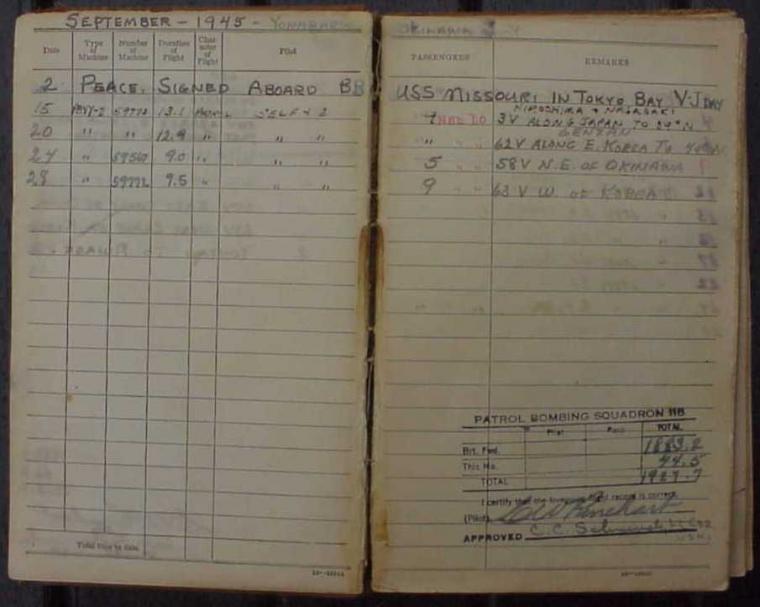 SEPTEMBER - 1945 - YONABARU
OKINAWA
Date Type of Machine Number of Machine Duration of Flight Character of Flight Pilot
PASSENGERS REMARKS
2 PEACE. SIGNED ABOARD BB USS MISSOURI IN TOKYO BAY V-J DAY
HIROSHIMA & NAGASAKI
15 PB4Y-2 59772 13.1 SELF + 2 3V ALONG JAPAN TO
GENZAN
20 " " 12.9 " " " " 62V ALONG E. KOREA TO
24 " 59560 9.0 " " " 5 " " 58V N.E. OF OKINAWA
28 " 59772 9.5 " " " 9 " " 63V W. OF KOREA
PATROL BOMBING SQUADRON 118
Pilot TOTAL
Brt. Fwd. 1883.2
This Mo. 44.5
TOTAL 1927.7
I certify that the foregoing flight record is correct.
(Pilot) Rinehart
APPROVED C.C.
Total time to date,